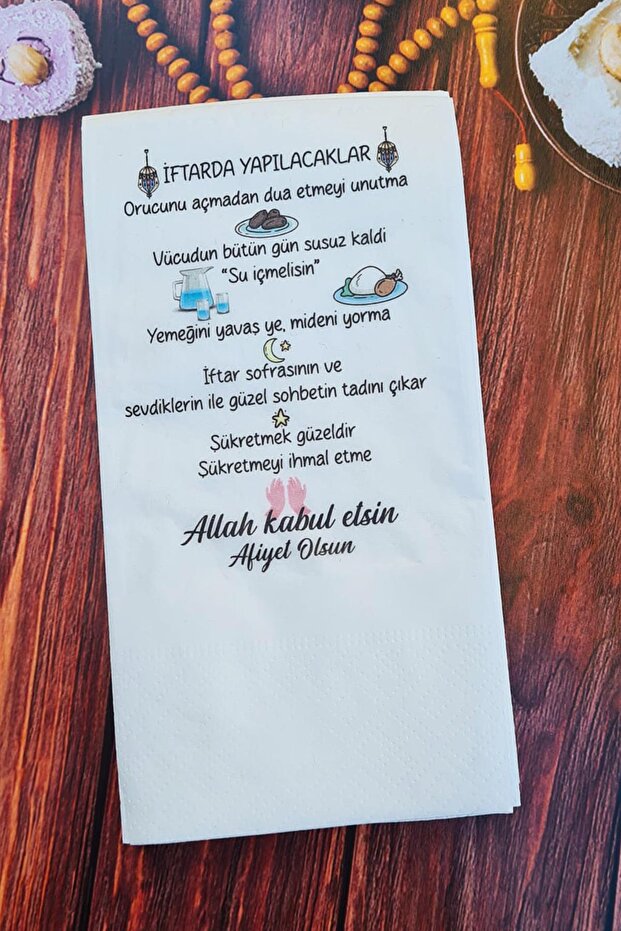 İFTARDA YAPILACAKLAR
Orucunu açmadan dua etmeyi unutma
Vücudun bütün gün susuz kaldi
“Su içmelisin”
Yemeğini yavaş ye, mideni yorma
İftar sofrasının ve
sevdiklerin ile güzel sohbetin tadını çıkar
Şükretmek güzeldir
Şükretmeyi ihmal etme
Allah kabul etsin
Afiyet Olsun